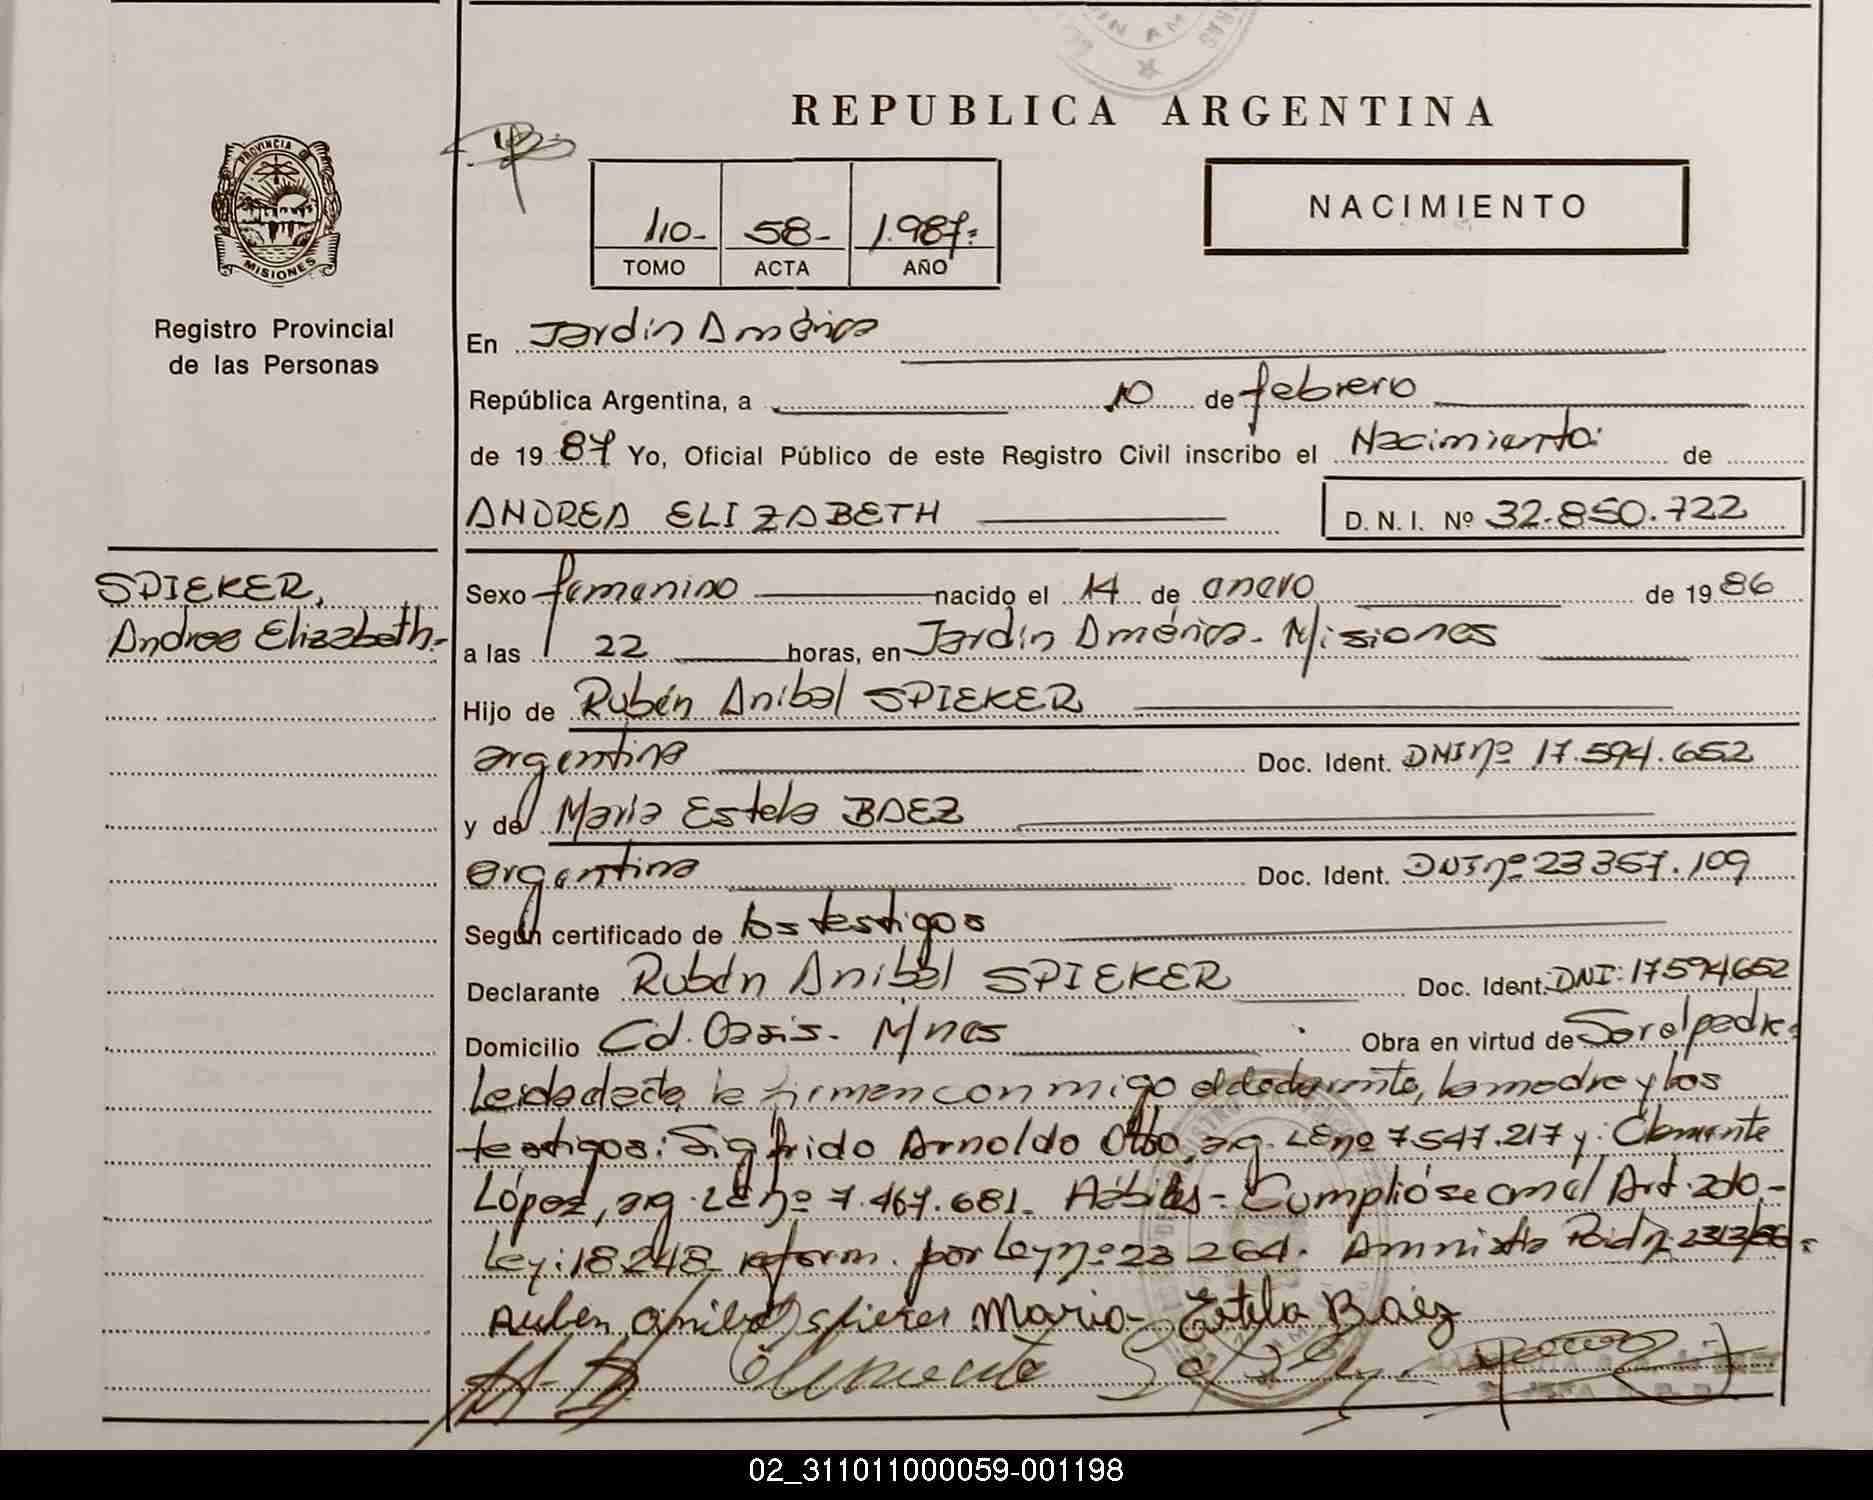 REPUBLICA ARGENTINA
PROVINCIA D
MISIONES
Registro Provincial
de las Personas
110- 58- 1.987.-
TOMO ACTA AÑO
NACIMIENTO
En Jardín América
República Argentina, a 10 de febrero
de 1987 Yo, Oficial Público de este Registro Civil inscribo el Nacimiento de
ANDREA ELIZABETH D. N. I. Nº 32.850.722
SPIEKER,
Andrea Elizabeth.-
Sexo femenino nacido el 14 de enero de 1986
a las 22 horas, en Jardín América - Misiones
Hijo de Rubén Anibal SPIEKER
argentina Doc. Ident. DNI nº 17.594.652
y de María Estela BAEZ
argentina Doc. Ident. DNI nº 23357.109
Según certificado de los testigos
Declarante Rubén Anibal SPIEKER Doc. Ident. DNI: 17594652
Domicilio Cd. Oasis - Mnes Obra en virtud de Ser el padre
Leida el acta la firman con migo el declarante, la madre y los
testigos: Sigfrido Arnoldo Otto, arg. LE nº 7.547.217 y: Clemente
López, arg. LE nº 7.467.681. Hábiles - Cumplióse con el Art. 2do.-
Ley: 18.248 reform. por Ley nº 23264. Amnistía 2313/86.
Ruben Anibal Spieker Maria Estela Baez
Clemente
02_311011000059-001198